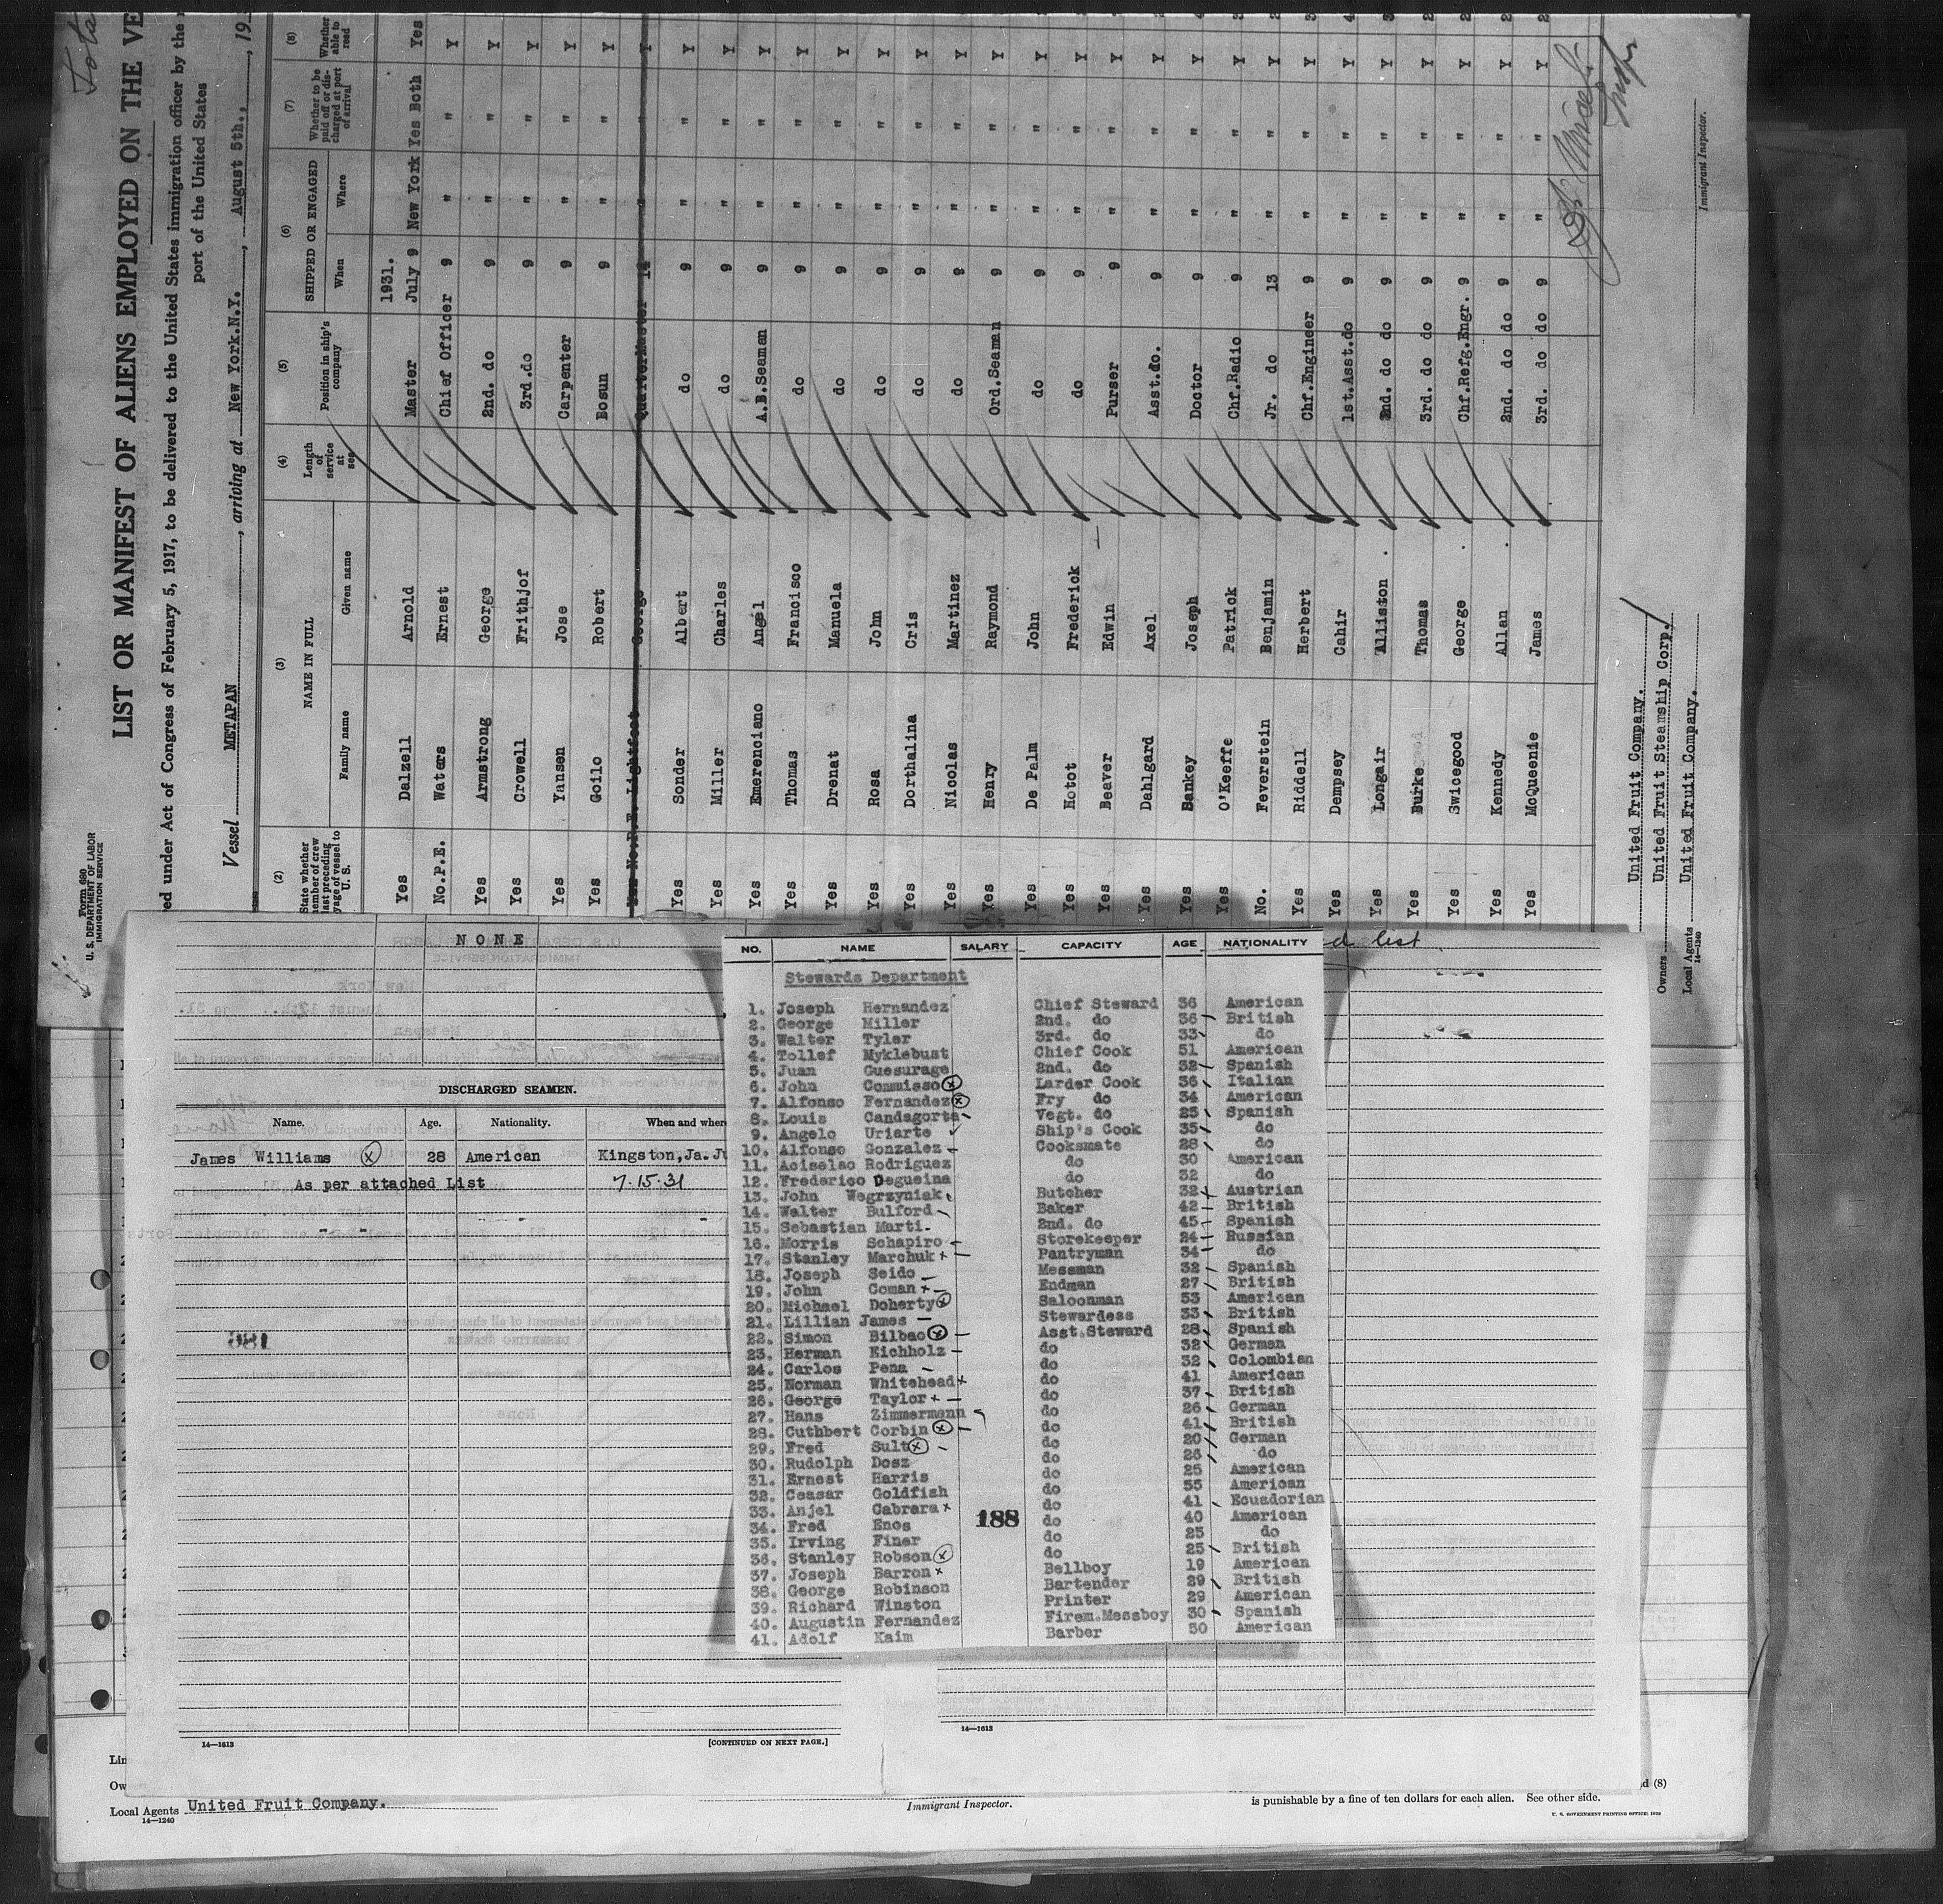 Form 680
U. S. DEPARTMENT OF LABOR
IMMIGRATION SERVICE
LIST OR MANIFEST OF ALIENS EMPLOYED ON THE VE
ed under Act of Congress of February 5, 1917, to be delivered to the United States immigration officer by the
port of the United States
Vessel METAPAN, arriving at New York.N.Y., August 5th., 19
(2) (3) (4) (5) (6) (7) (8)
State whether member of crew last preceding voyage of vessel to U. S. NAME IN FULL Family name Given name Length of service at sea Position in ship's company SHIPPED OR ENGAGED When Where Whether to be paid off or discharged at port of arrival Whether able to read
1931.
Yes Dalzell Arnold Master July 9 New York Yes Both Yes
No.P.E. Waters Ernest Chief Officer 9 " " Y
Yes Armstrong George 2nd. do 9 " " Y
Yes Crowell Frithjof 3rd.do 9 " " Y
Yes Yansen Jose Carpenter 9 " " Y
Yes Goilo Robert Bosun 9 " " Y
No.P.E. Lightfoot George QuarterMaster 14 Y
Yes Sonder Albert do 9 " " Y
Yes Miller Charles do 9 " " Y
Yes Emerenciano Angel A.B.Seaman 9 " " Y
Yes Thomas Francisco do 9 " " Y
Yes Drenat Manuela do 9 " " Y
Yes Rosa John do 9 " " Y
Yes Dorthalina Cris do 9 " " Y
Yes Nicolas Martinez do 9 " " Y
Yes Henry Raymond Ord.Seaman 9 " " Y
Yes De Palm John do 9 " " Y
Yes Hotot Frederick do 9 " " Y
Yes Beaver Edwin Purser 9 " " Y
Yes Dahlgard Axel Asst.do. 9 " " Y
Yes Bankey Joseph Doctor 9 " " Y
Yes O'Keefe Patrick Chf.Radio 9 " " Y
No. Feverstein Benjamin Jr. do 13 " " Y
Yes Riddell Herbert Chf.Engineer 9 " " Y
Yes Dempsey Cahir 1st.Asst.do 9 " " Y
Yes Longair Alliston 2nd. do do 9 " " Y
Yes Burke Thomas 3rd. do do 9 " " Y
Yes Swicegood George Chf.Refg.Engr. 9 " " Y
Yes Kennedy Allan 2nd. do do 9 " " Y
Yes McQueenie James 3rd. do do 9 " " Y
United Fruit Company.
Owners United Fruit Steamship Corp.
Local Agents United Fruit Company.
14—1240
Immigrant Inspector.
NONE
DISCHARGED SEAMEN.
Name. Age. Nationality. When and where
James Williams 28 American Kingston,Ja.
As per attached List 7.15.31
14—1613
[CONTINUED ON NEXT PAGE.]
d list
NO. NAME SALARY CAPACITY AGE NATIONALITY
Stewards Department
1. Joseph Hernandez Chief Steward 36 American
2. George Miller 2nd. do 36 British
3. Walter Tyler 3rd. do 33 do
4. Tollef Myklebust Chief Cook 51 American
5. Juan Guesurage 2nd. do 32 Spanish
6. John Commisso Larder Cook 36 Italian
7. Alfonso Fernandez Fry do 34 American
8. Louis Candagorta Vegt. do 25 Spanish
9. Angelo Uriarte Ship's Cook 35 do
10. Alfonso Gonzalez Cooksmate 28 do
11. Aciselao Rodriguez do 30 American
12. Frederico Degueina do 32 do
13. John Wegrzyniak Butcher 32 Austrian
14. Walter Bulford Baker 42 British
15. Sebastian Marti 2nd. do 45 Spanish
16. Morris Schapiro Storekeeper 24 Russian
17. Stanley Marchuk Pantryman 34 do
18. Joseph Seido Messman 32 Spanish
19. John Coman Endman 27 British
20. Michael Doherty Saloonman 53 American
21. Lillian James Stewardess 33 British
22. Simon Bilbao Asst.Steward 28 Spanish
23. Herman Eichholz do 32 German
24. Carlos Pena do 32 Colombian
25. Norman Whitehead do 41 American
26. George Taylor do 37 British
27. Hans Zimmermann do 26 German
28. Cuthbert Corbin do 41 British
29. Fred Sult do 20 German
30. Rudolph Dosz do 26 do
31. Ernest Harris do 25 American
32. Ceasar Goldfish do 55 American
33. Anjel Cabrara do 41 Ecuadorian
34. Fred Enos do 40 American
35. Irving Finer do 25 do
36. Stanley Robson do 25 British
37. Joseph Barron Bellboy 19 American
38. George Robinson Bartender 29 British
39. Richard Winston Printer 29 American
40. Augustin Fernandez Firem.Messboy 30 Spanish
41. Adolf Kaim Barber 50 American
188
14—1613
Lin
Ow
Local Agents United Fruit Company.
14—1240
Immigrant Inspector.
d (8)
is punishable by a fine of ten dollars for each alien. See other side.